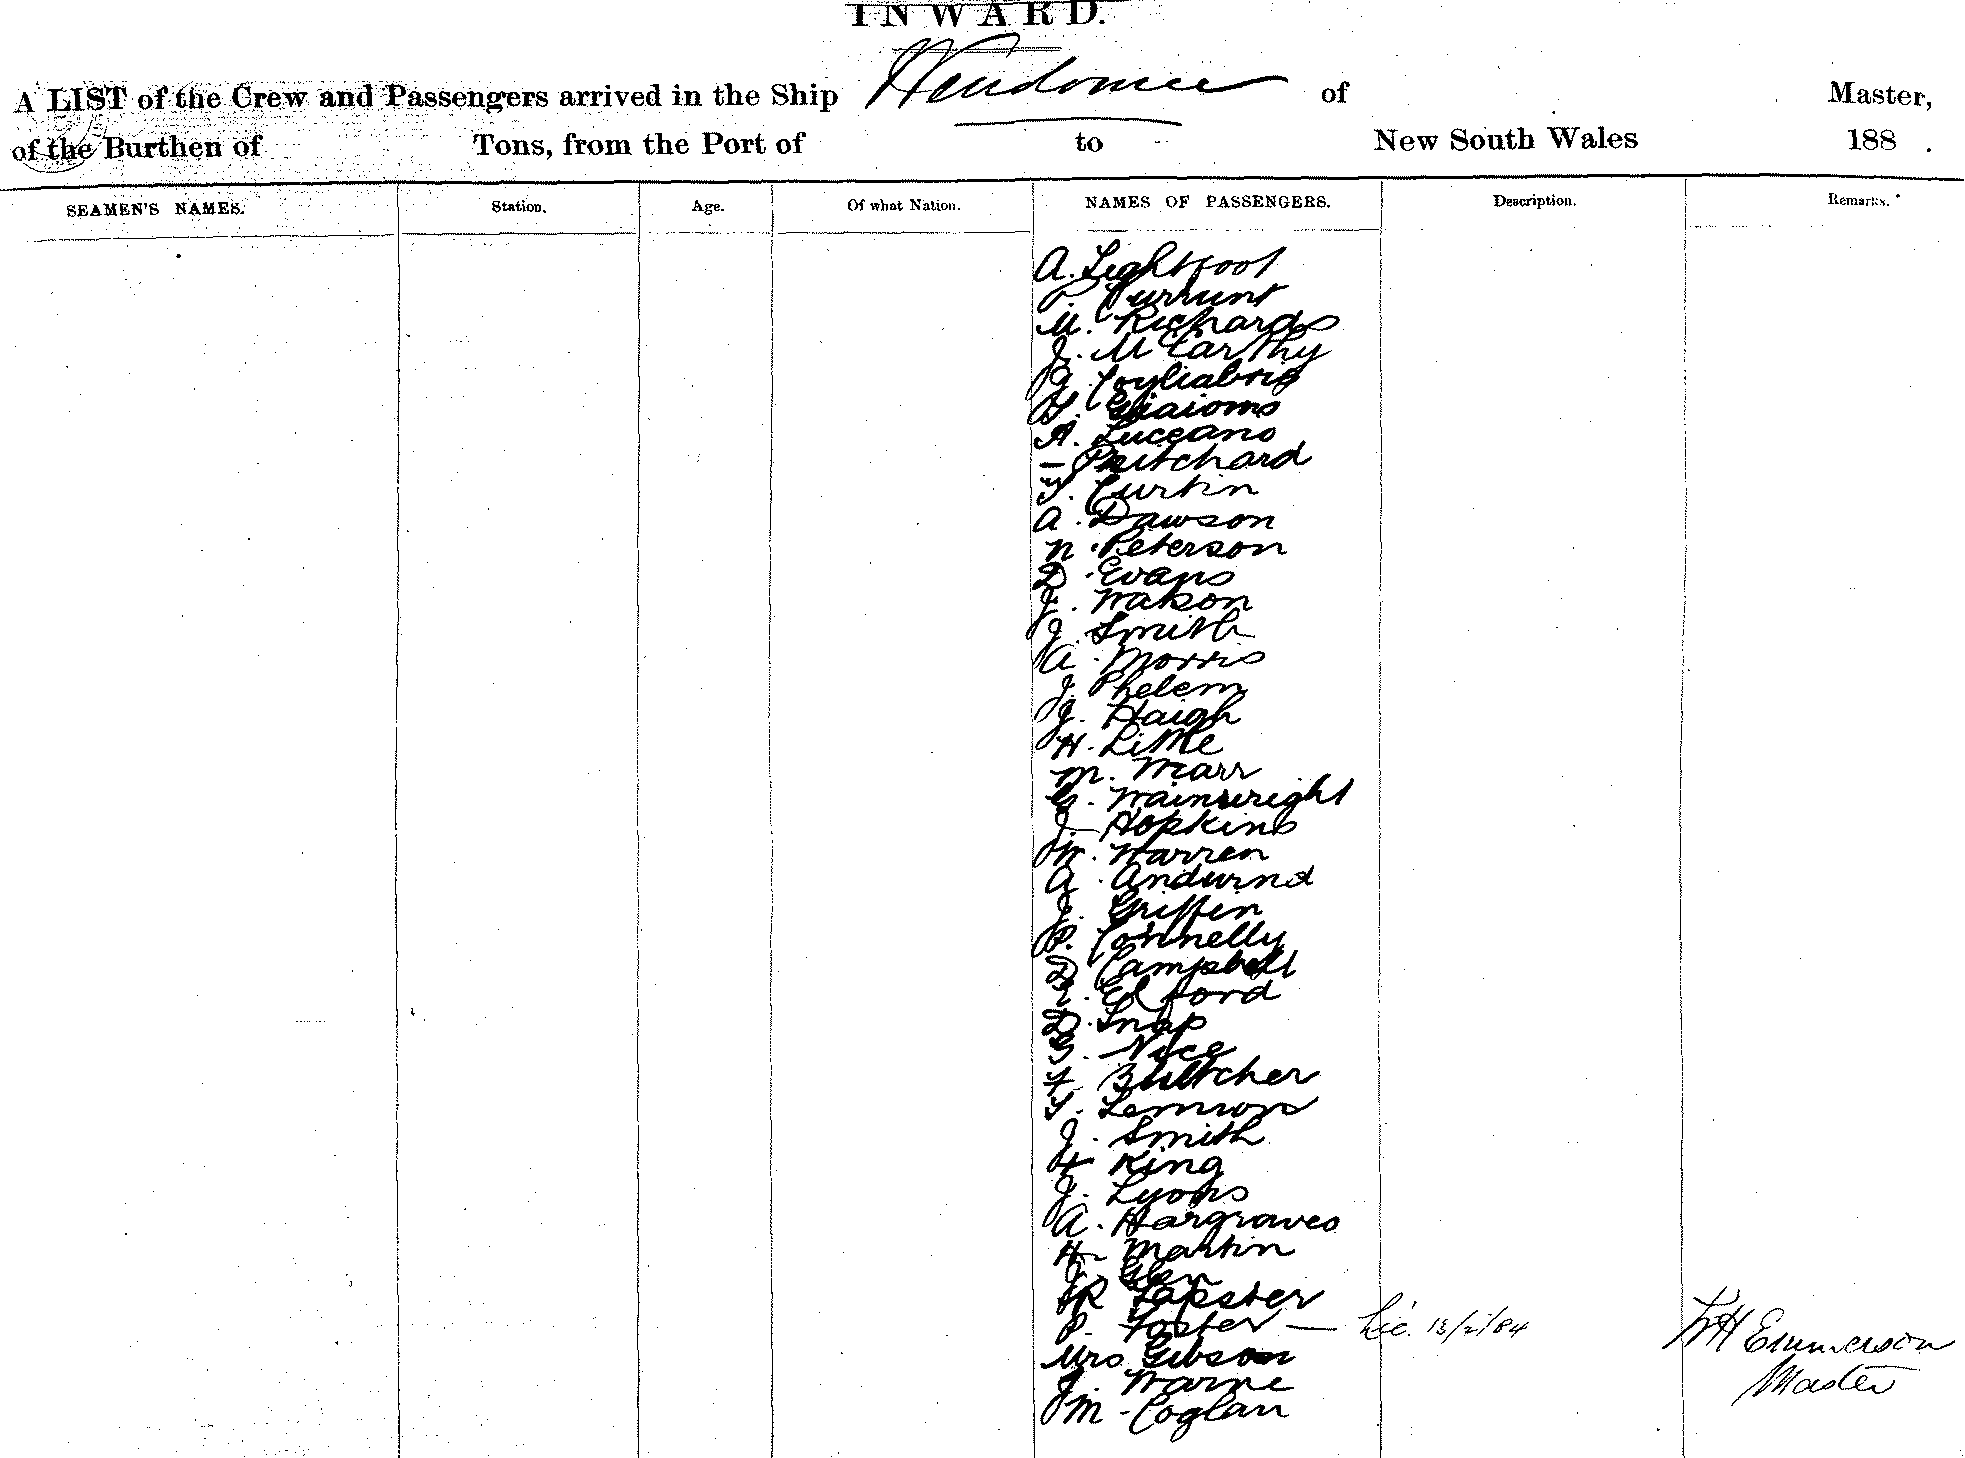 INWARD.
A LIST of the Crew and Passengers arrived in the Ship Wendouree of Master,
of the Burthen of Tons, from the Port of to New South Wales 188 .
SEAMEN'S NAMES. Station. Age. Of what Nation. NAMES OF PASSENGERS. Description. Remarks.
A. Lightfoot
P.
M. Richards
J. McCarthy
G.
A. Luceano
- Pritchard
T. Curtin
A. Dawson
N. Peterson
D. Evans
J. Watson
J. Smith
A. Morris
J. Phelem
J. Haigh
H. Little
M. Marr
G. Wainwright
J. Hopkins
W. Warren
A. Andwind
J. Griffin
P. Connelly
D. Campbell
Edford
D. Snap
G. Nice
F. Bultcher
T. Lemmon
J. Smith
H King
J. Lyons
A. Hargraves
H. Martin
J. Glen
R Tapster
P. Foster — Lic. 13/2/84
Mrs Gibson
J. Warne
M. Coglan
WH Emmerson
Master